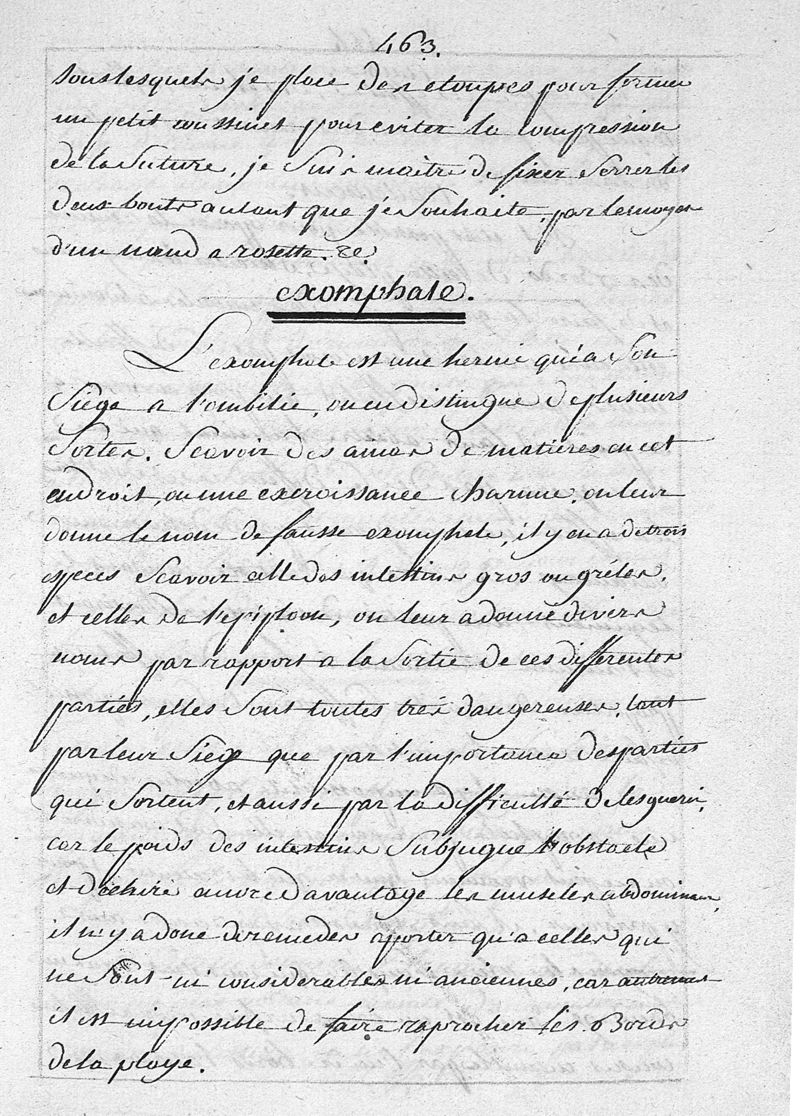 463.
Souslesquels je place des etoupes pour former
un petit coussinet pour eviter la compression
de la Suture, je Suis maitre de fixer Serrer les
deux bouts autant que je Souhaite, par le moyen
d'un nœud a rosette. &c.
exomphale.
L'exomphale est une hernie qui a Son
Siége a l'ombilic, on en distingue de plusieurs
Sortes. Scavoir des amas de matières en cet
endroit, ou une excroissance charnue, on leur
donne le nom de fausse exomphale, il y en a de trois
especes Scavoir celle des intestins gros ou grêles,
et celles de l'epiploon, on leur a donné divers
noms par rapport a la Sortie de ces differentes
parties, elles Sont toutes très dangereuses, tant
par leur Siége que par l'importance des parties
qui Sortent, et aussi par la difficulté de les guerir,
car le poids des intestins Subjugue l'obstacle
et déchire encore davantage les muscles abdominaux,
il n'y a donc de remedes apporter qu'a celles qui
ne Sont ni considerables ni anciennes, car autrement
il est impossible de faire raprocher les Bords
de la playe.